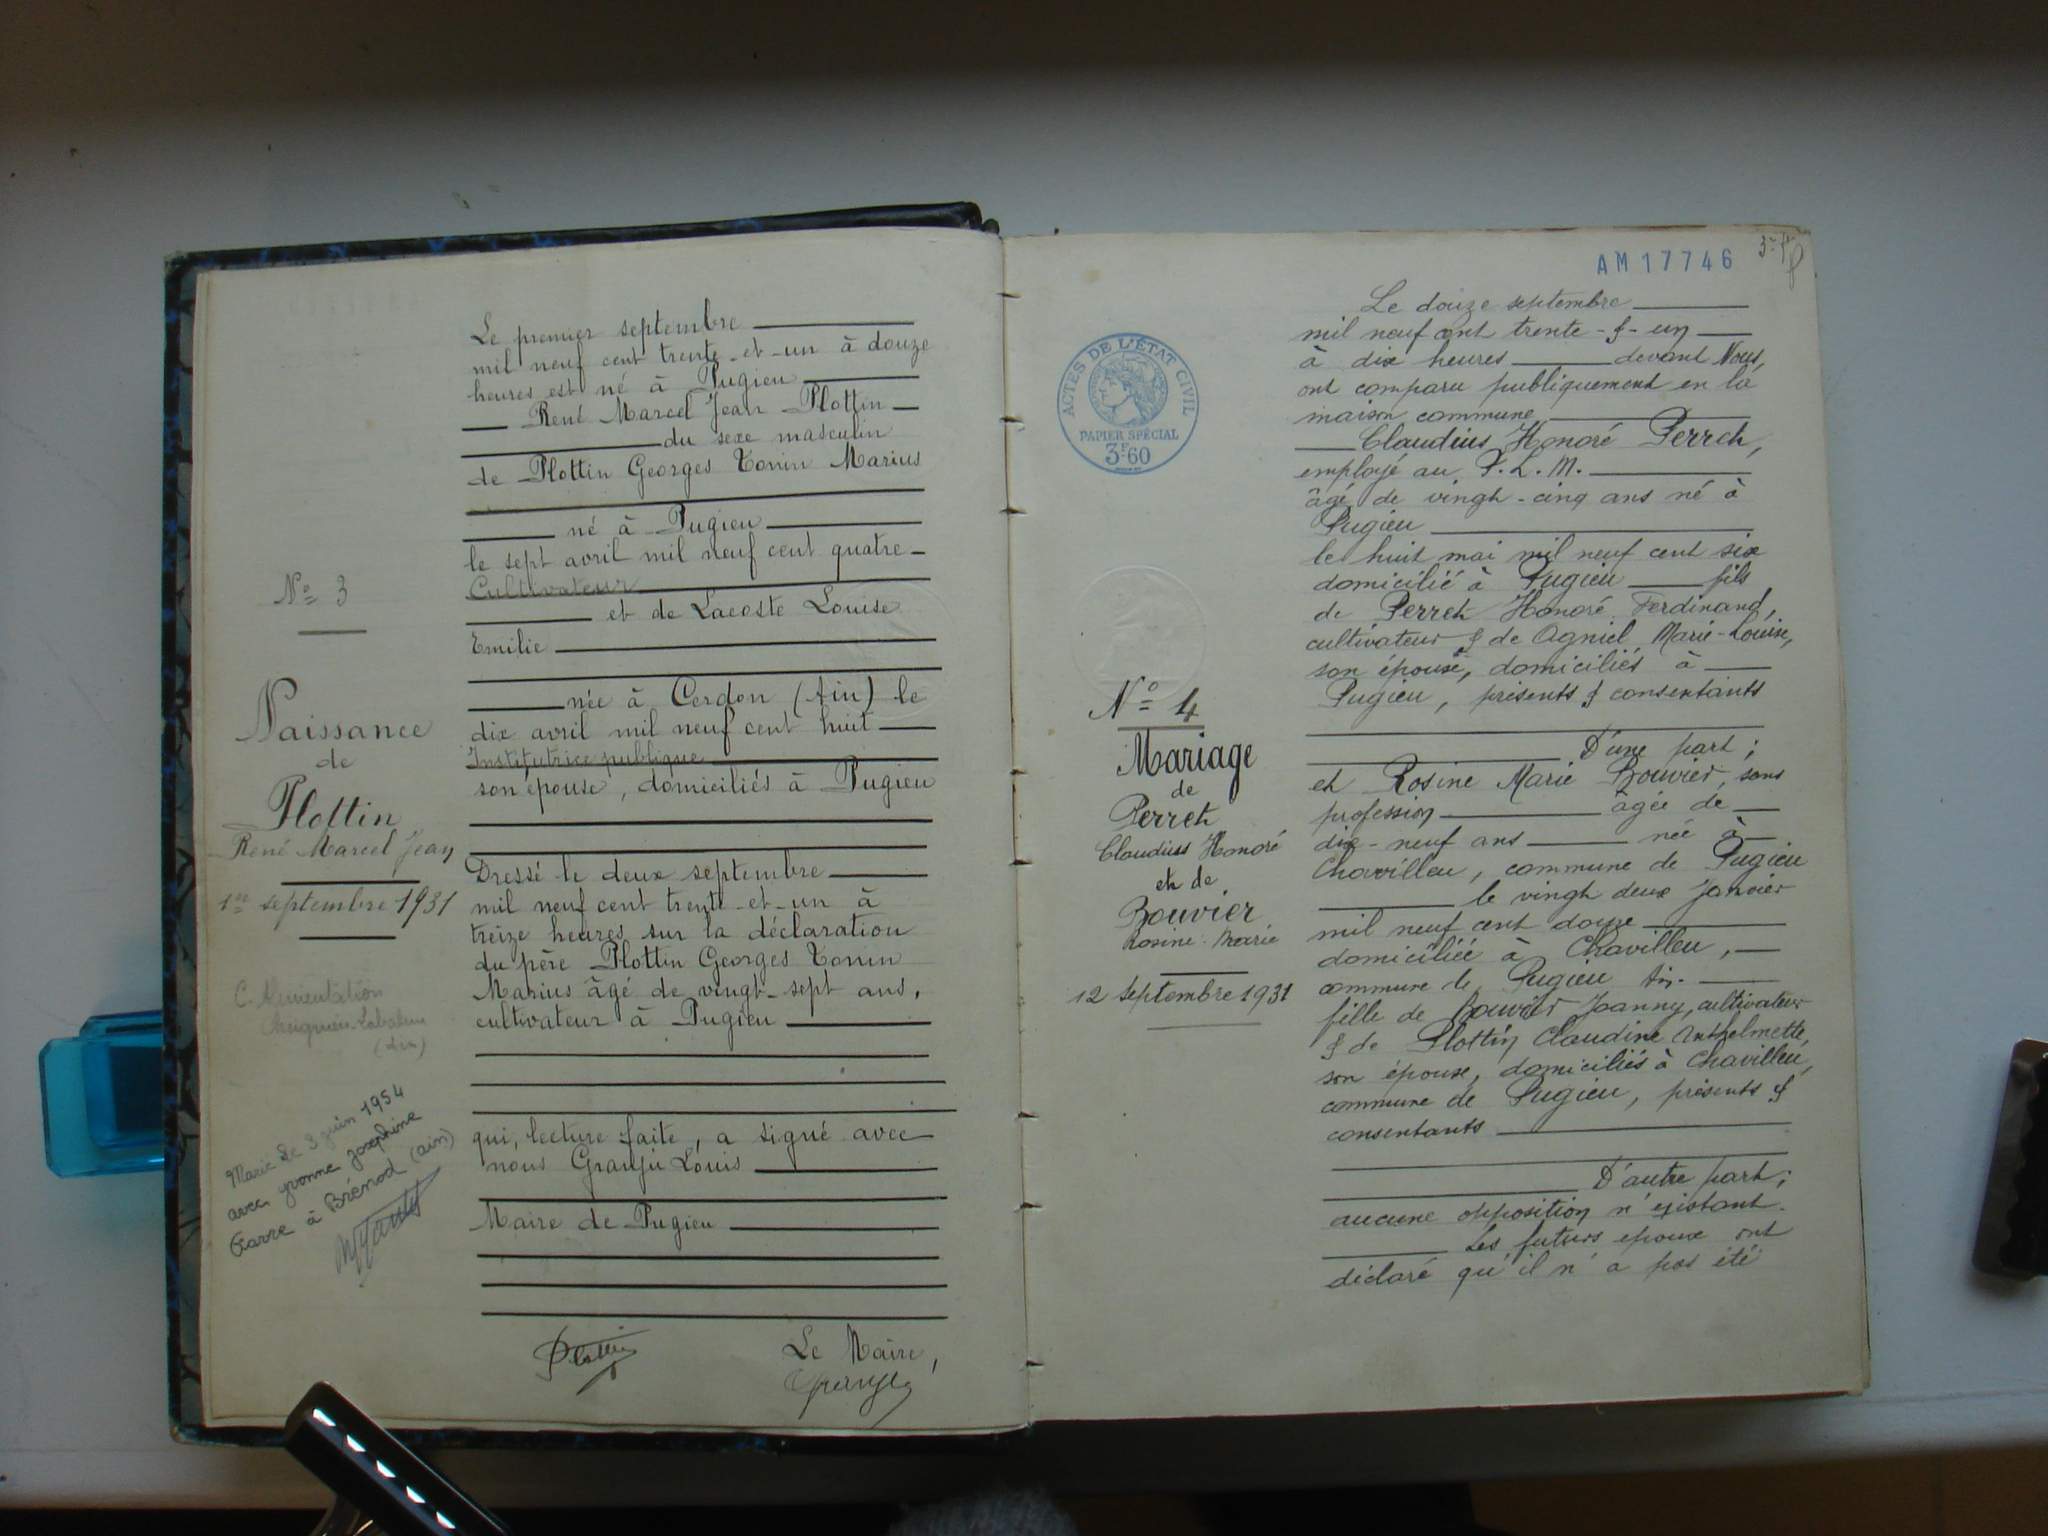 N° 3
Naissance
de
Plottin
René Marcel Jean
1er septembre 1931
C. Alimentation
(Ain)
Marié le 3 juin 1954
avec Yvonne Josephine
à Brénod (Ain)
Le premier septembre
mil neuf cent trente-et-un à douze
heures est né à Pugieu
René Marcel Jean Plottin
du sexe masculin
de Plottin Georges Tonin Marius
né à Pugieu
le sept avril mil neuf cent quatre
Cultivateur
et de Lacoste Louise
Emilie
née à Cerdon (Ain) le
dix avril mil neuf cent huit
Institutrice publique
son épouse, domiciliés à Pugieu
Dressé le deux septembre
mil neuf cent trente-et-un à
treize heures sur la déclaration
du père Plottin Georges Tonin
Marius âgé de vingt-sept ans,
cultivateur à Pugieu
qui, lecture faite, a signé avec
nous Granju Louis
Maire de Pugieu
Plottin
Le Maire,
AM 17746
ACTES DE L'ÉTAT CIVIL
PAPIER SPÉCIAL
3F60
N° 4
Mariage
de
Perret
Claudius Honoré
et de
Bouvier
Rosine Marie
12 septembre 1931
Le douze septembre
mil neuf cent trente-&-un
à dix heures devant Nous,
ont comparu publiquement en la
maison commune
Claudius Honoré Perret,
employé au P.L.M.
âgé de vingt-cinq ans né à
Pugieu
le huit mai mil neuf cent six
domicilié à Pugieu fils
de Perret Honoré Ferdinand,
cultivateur & de Agniel Marie-Louise,
son épouse, domiciliés à
Pugieu, présents & consentants
D'une part;
et Rosine Marie Bouvier, sans
profession âgée de
dix-neuf ans née à
Chavilleu, commune de Pugieu
le vingt deux Janvier
mil neuf cent douze
domiciliée à Chavilleu,
commune de Pugieu Ain.
fille de Bouvier Joanny, cultivateur
& de Plottin Claudine Anthelmette,
son épouse, domiciliés à Chavilleu,
commune de Pugieu, présents &
consentants
D'autre part;
aucune opposition n'existant.
Les futurs epoux ont
déclaré qu'il n'a pas été